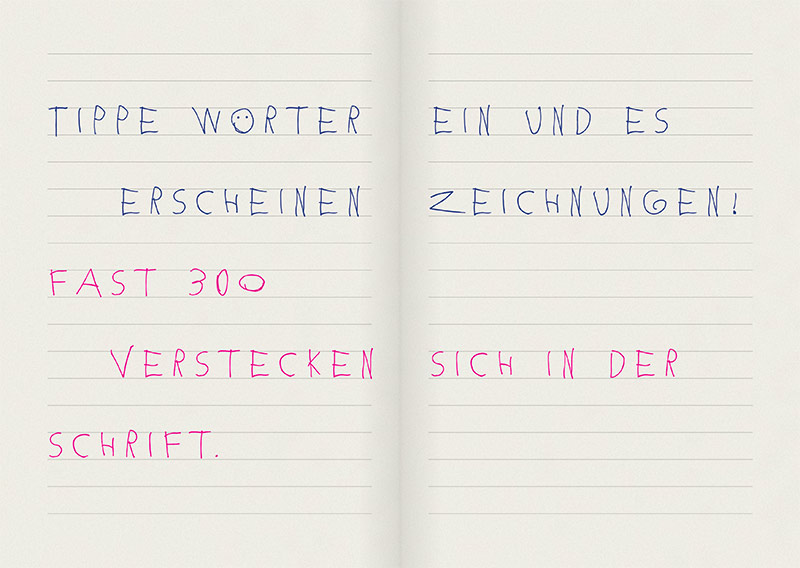 TIPPE WÖRTER EIN UND ES
ERSCHEINEN ZEICHNUNGEN!
FAST 300
VERSTECKEN SICH IN DER
SCHRIFT.